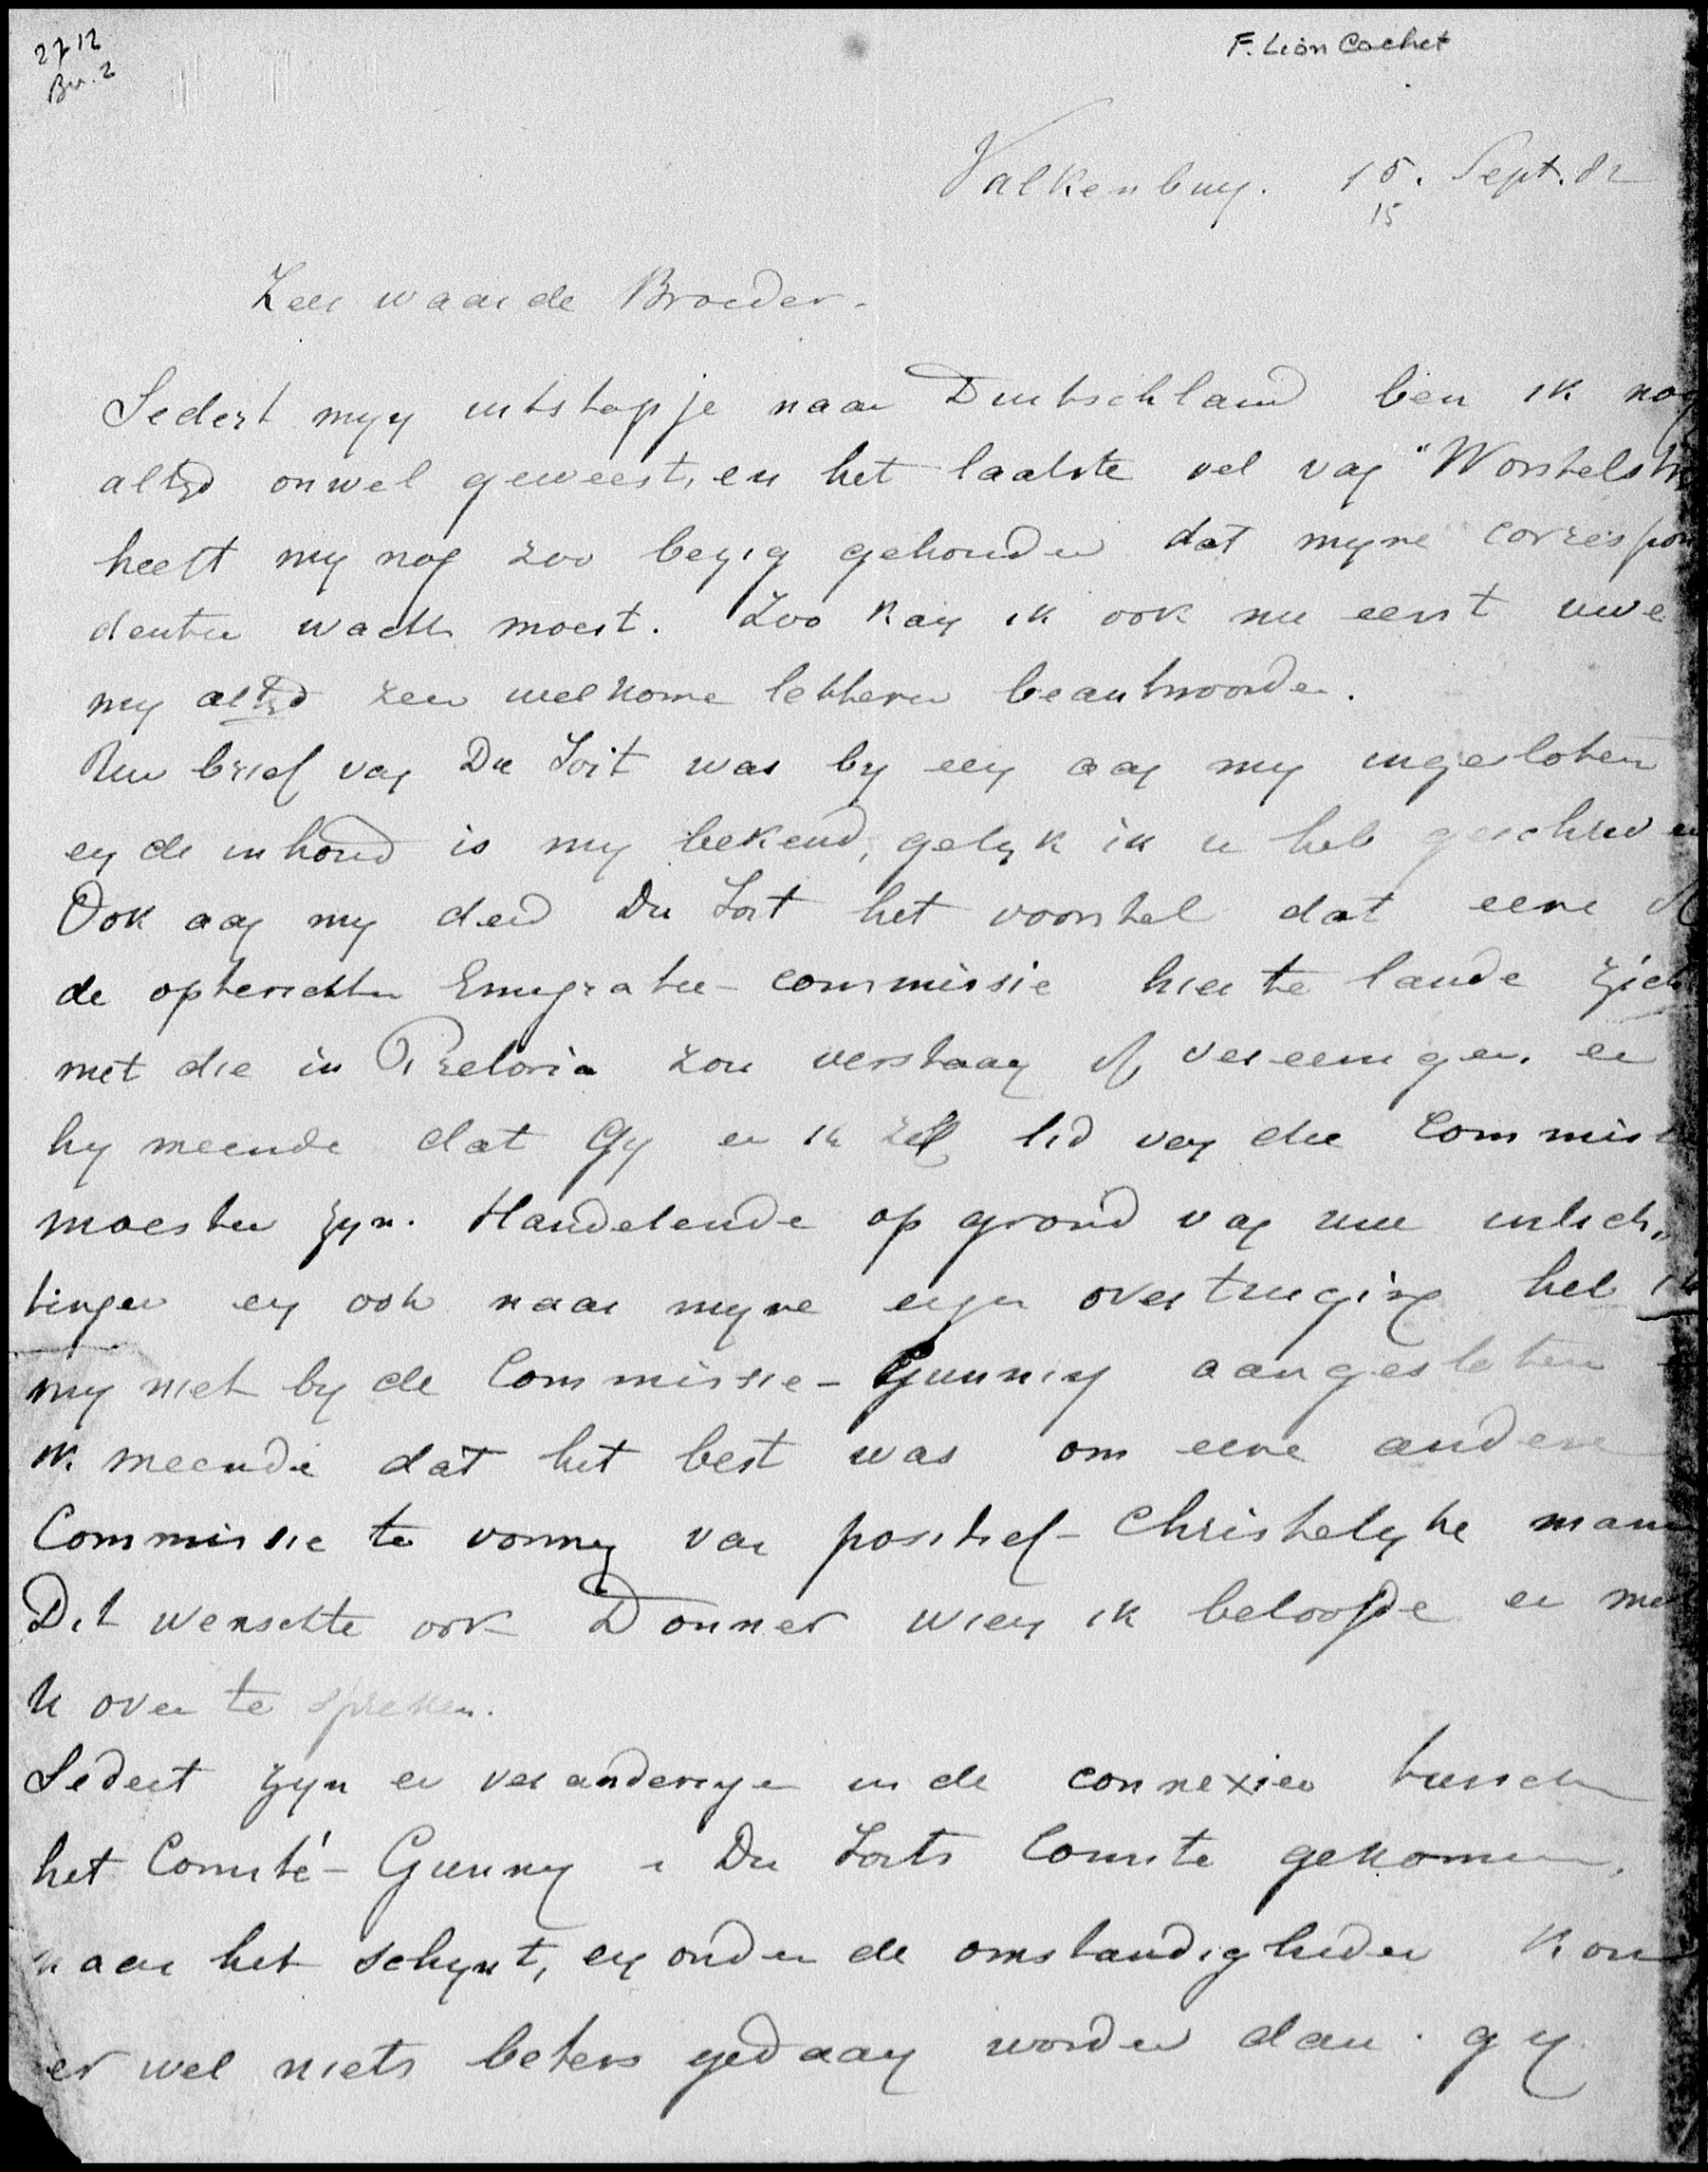 2712
Br. 2
F. Lion Cachet
Valkenburg. 15. Sept. 82
15
Zeer waarde Broeder.
Sedert myn uitstapje naar Duitschland ben ik nog
altyd onwel geweest, en het laatste vel van "Worstelstr
heeft my nog zoo bezig gehouden dat myne correspon
dentie wachten moest. Zoo kan ik ook nu eerst uwe
my altyd zeer welkome letteren beantwoorden.
Uw brief van Du Toit was by een aan my ingesloten
en de inhoud is my bekend, gelyk ik u heb geschreven
Ook aan my deed Du Toit het voorstel dat eene
de opterichten Emigratie-commissie hier te lande zich
met die in Pretoria zou verstaan of vereenigen. en
hy meende dat Gy en ik zelf lid van die Commissie
moesten zyn. Handelende op grond van uwe inlich-
tingen en ook naar myne eigen overtuiging heb ik
my niet by de Commissie-Gunning aangesloten
ik meende dat het best was om eene andere
Commissie te vormen van positief-Christelyke mann
Dit wenschte ook Donner wien ik beloofde er met
U over te spreken.
Sedert zyn er veranderingen in de connexies tusschen
het Comité-Gunning & Du Toits Comite gekomen,
naar het schynt, en onder de omstandigheden kon
er wel niets beters gedaan worden dan gy